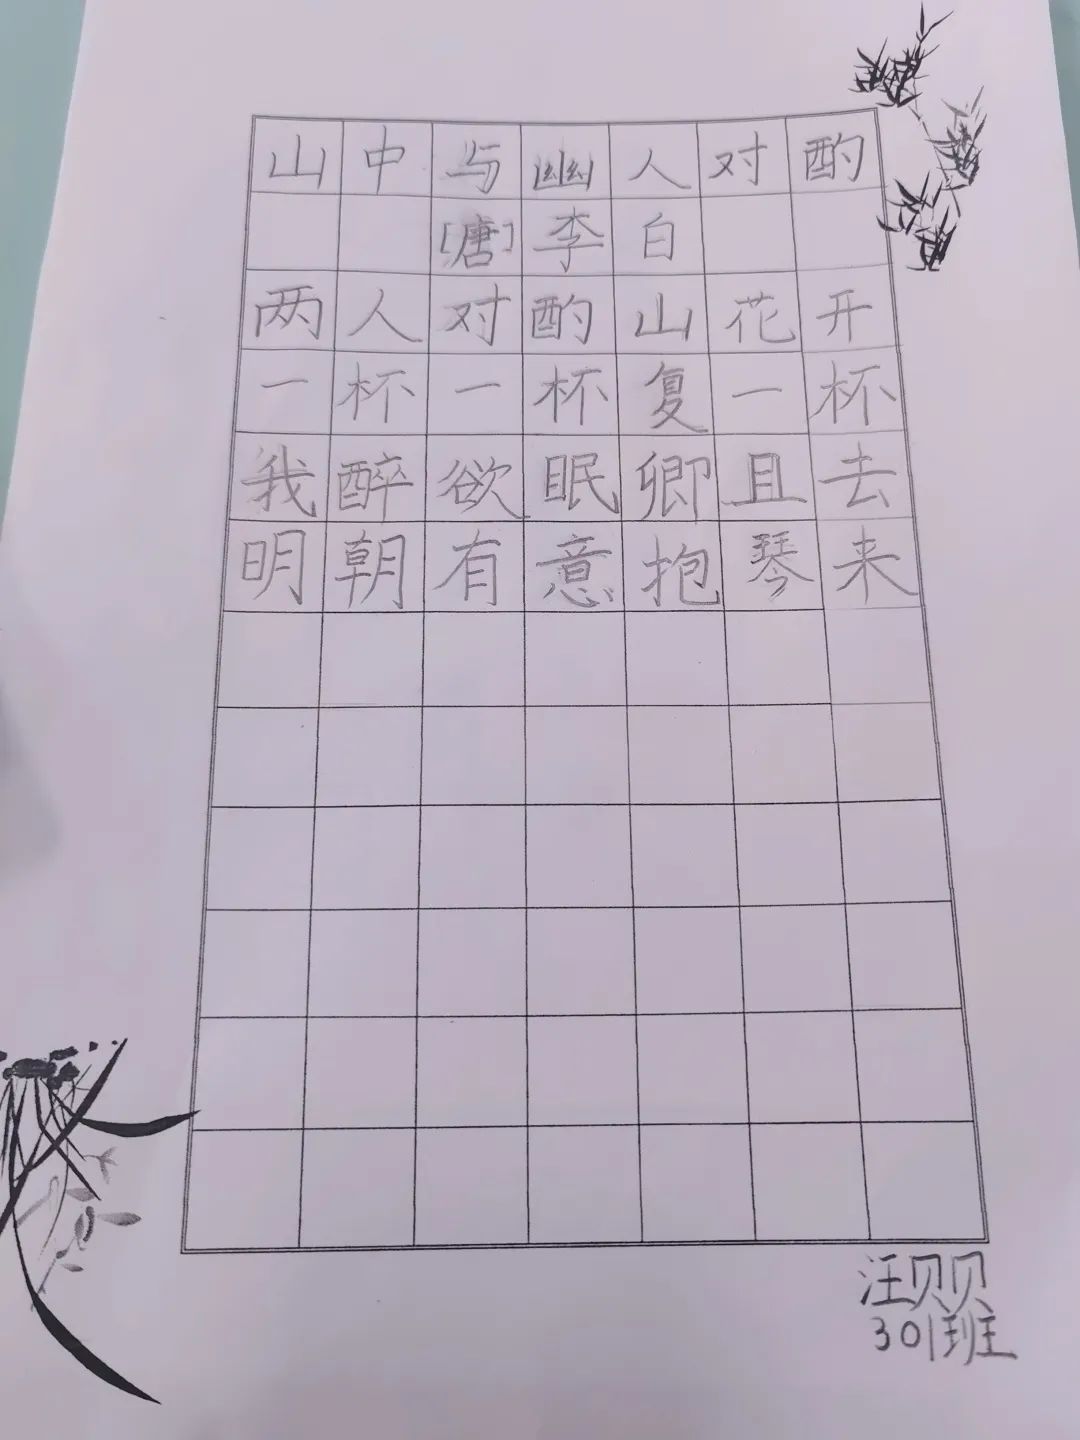 山中与幽人对酌
[唐]李白
两人对酌山花开
一杯一杯复一杯
我醉欲眠卿且去
明朝有意抱琴来
汪贝贝
301班